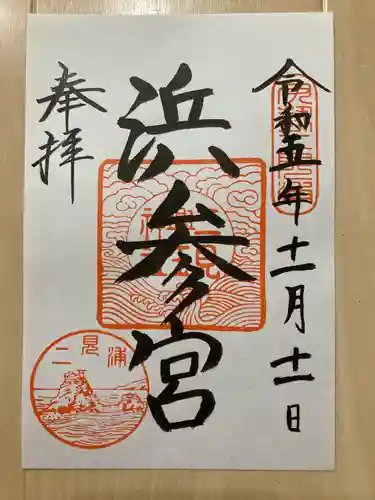 令和五年十一月十一日
浜参宮
奉拝
二見浦